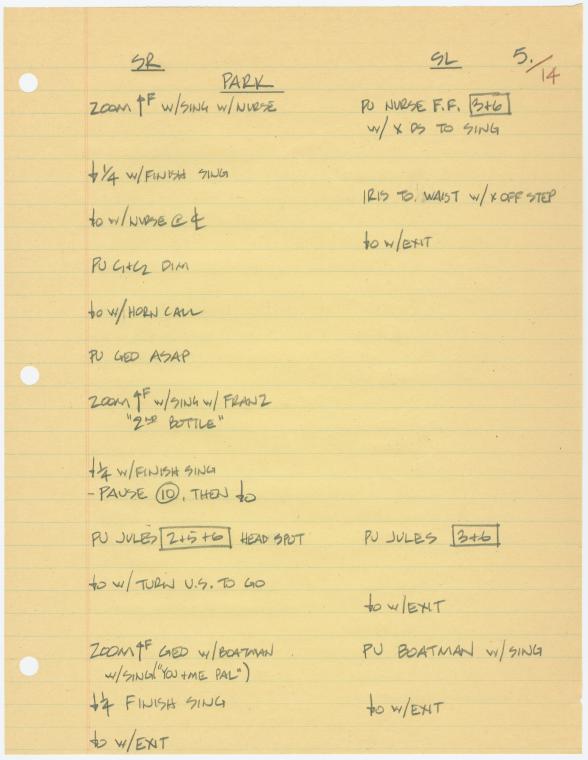 SR SL 5./14
PARK
ZOOM ↑F W/SING W/NURSE PU NURSE F.F. [3+6]
W/ X DS TO SING
↓1/4 W/FINISH SING
IRIS TO WAIST W/X OFF STEP
↓0 W/NURSE @ ℄
↓0 W/EXIT
PU C1+C2 DIM
↓0 W/HORN CALL
PU GED ASAP
ZOOM ↑F W/SING W/FRANZ
"2ND BOTTLE"
↓1/4 W/FINISH SING
- PAUSE (10), THEN ↓0
PU JULES [2+5+6] HEAD SPOT PU JULES [3+6]
↓0 W/TURN U.S. TO GO
↓0 W/EXIT
ZOOM ↑F GED W/BOATMAN PU BOATMAN W/SING
W/SING("YOU+ME PAL")
↓1/4 FINISH SING ↓0 W/EXIT
↓0 W/EXIT